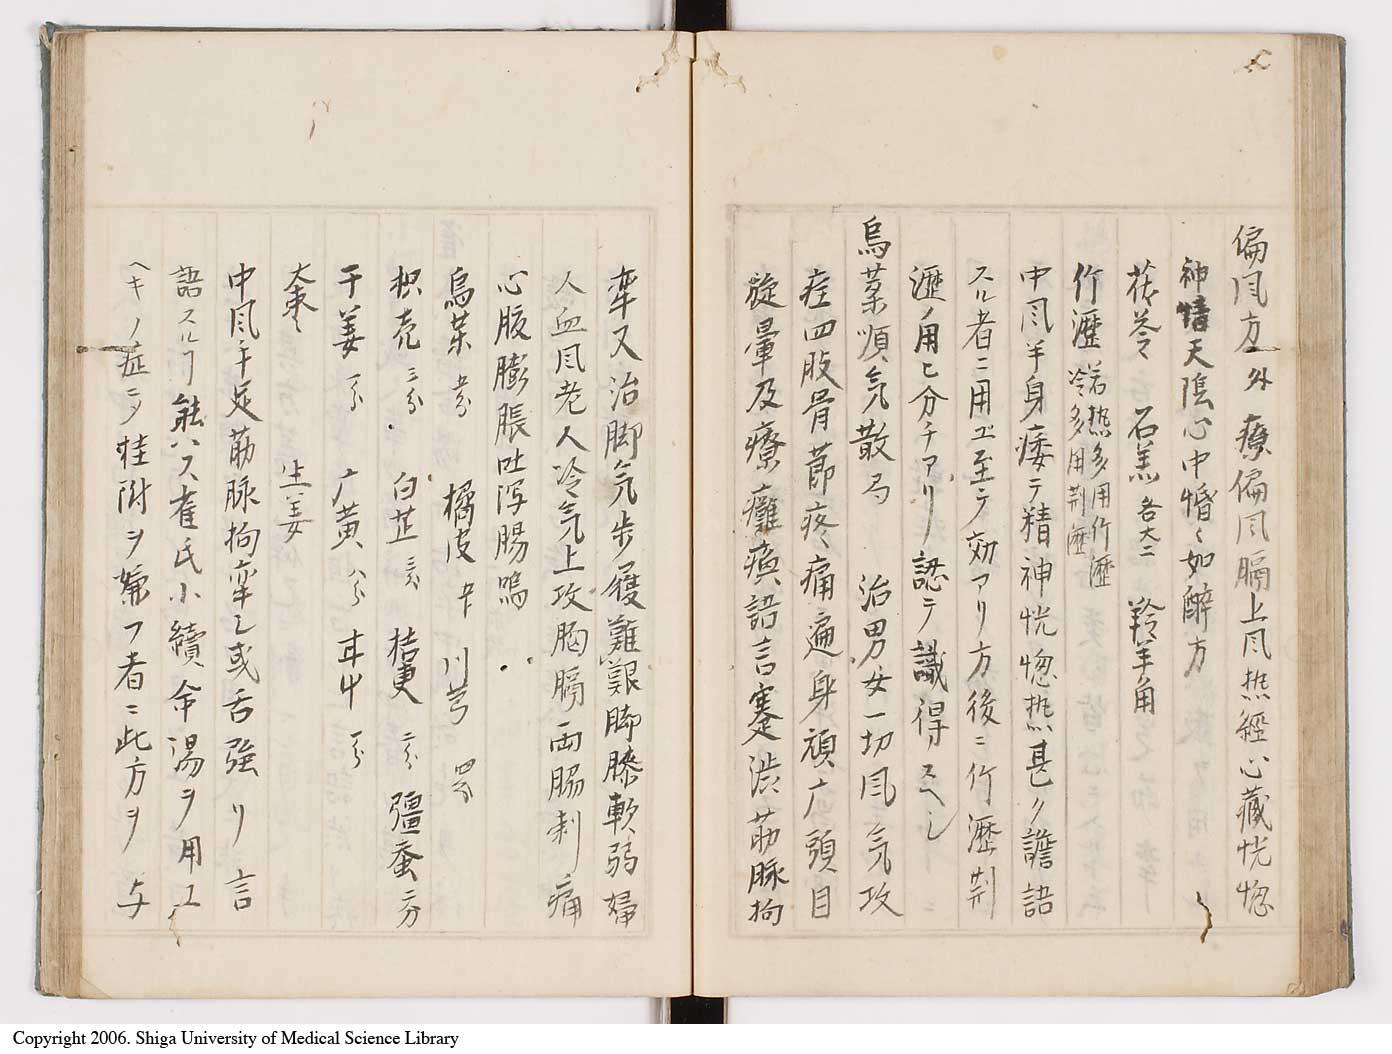 偏風方 外 療偏風膈上風熱經心藏恍惚
神情天陰心中惛〻如醉方
茯苓 石羔 各大二 羚羊角
竹瀝 若熱多用竹瀝
冷多用荆瀝
中風半身痿テ精神恍惚熱甚ク譫語
スル者ニ用ユ至テ効アリ方後ニ竹瀝荆
瀝ノ用ヒ分チアリ認テ識得スヘシ
烏薬順気散 局 治男女一切風気攻
疰四肢骨節疼痛遍身頑广頭目
旋暈及療癱瘓語言蹇渋筋脉拘
牽又治脚気步履難艱脚膝軟弱婦
人血風老人冷気上攻胸膈両脇刺痛
心腹膨脹吐泻腸鳴
烏薬 橘皮 川芎
枳売 三分 白芷 三分 桔更 二分 彊蚕 二分
干姜 一分 广黄 八分 一分
大棗 生姜
中風手足筋脉拘牽シ或舌強リ言
語スルヿ能ハス崔氏小續命湯ヲ用ユ
ヘキノ症ニ〆桂附ヲ嫌フ者ニ此方ヲ与
Copyright 2006. Shiga University of Medical Science Library